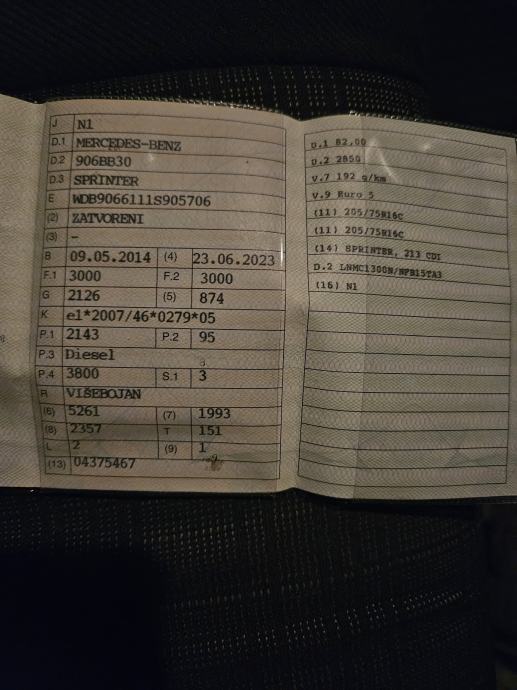 J N1
D.1 MERCEDES-BENZ
D.2 906BB30
D.3 SPRINTER
E WDB9066111S905706
(2) ZATVORENI
(3) -
B 09.05.2014 (4) 23.06.2023
F.1 3000 F.2 3000
G 2126 (5) 874
K e1*2007/46*0279*05
P.1 2143 P.2 95
P.3 Diesel
P.4 3800 S.1 3
R VIŠEBOJAN
(6) 5261 (7) 1993
(8) 2357 T 151
L 2 (9) 1
(13) 04375467
U.1 82,00
U.2 2850
V.7 192 g/km
V.9 Euro 5
(11) 205/75R16C
(11) 205/75R16C
(14) SPRINTER, 213 CDI
D.2 LNMC1300N/NFB15TA3
(16) N1